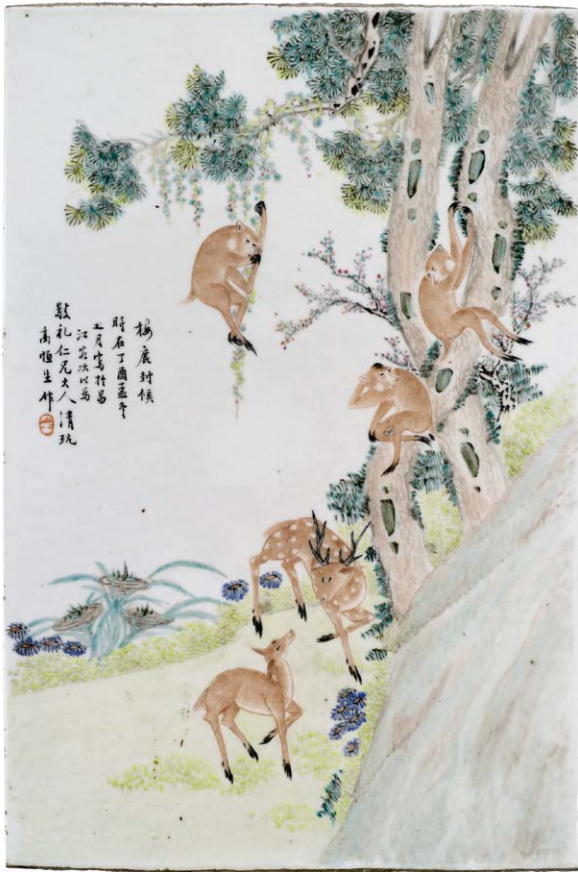 梅鹿封候
時在丁酉孟冬
月寫於昌
江客次以為
礼仁兄大人清玩
高恒生作